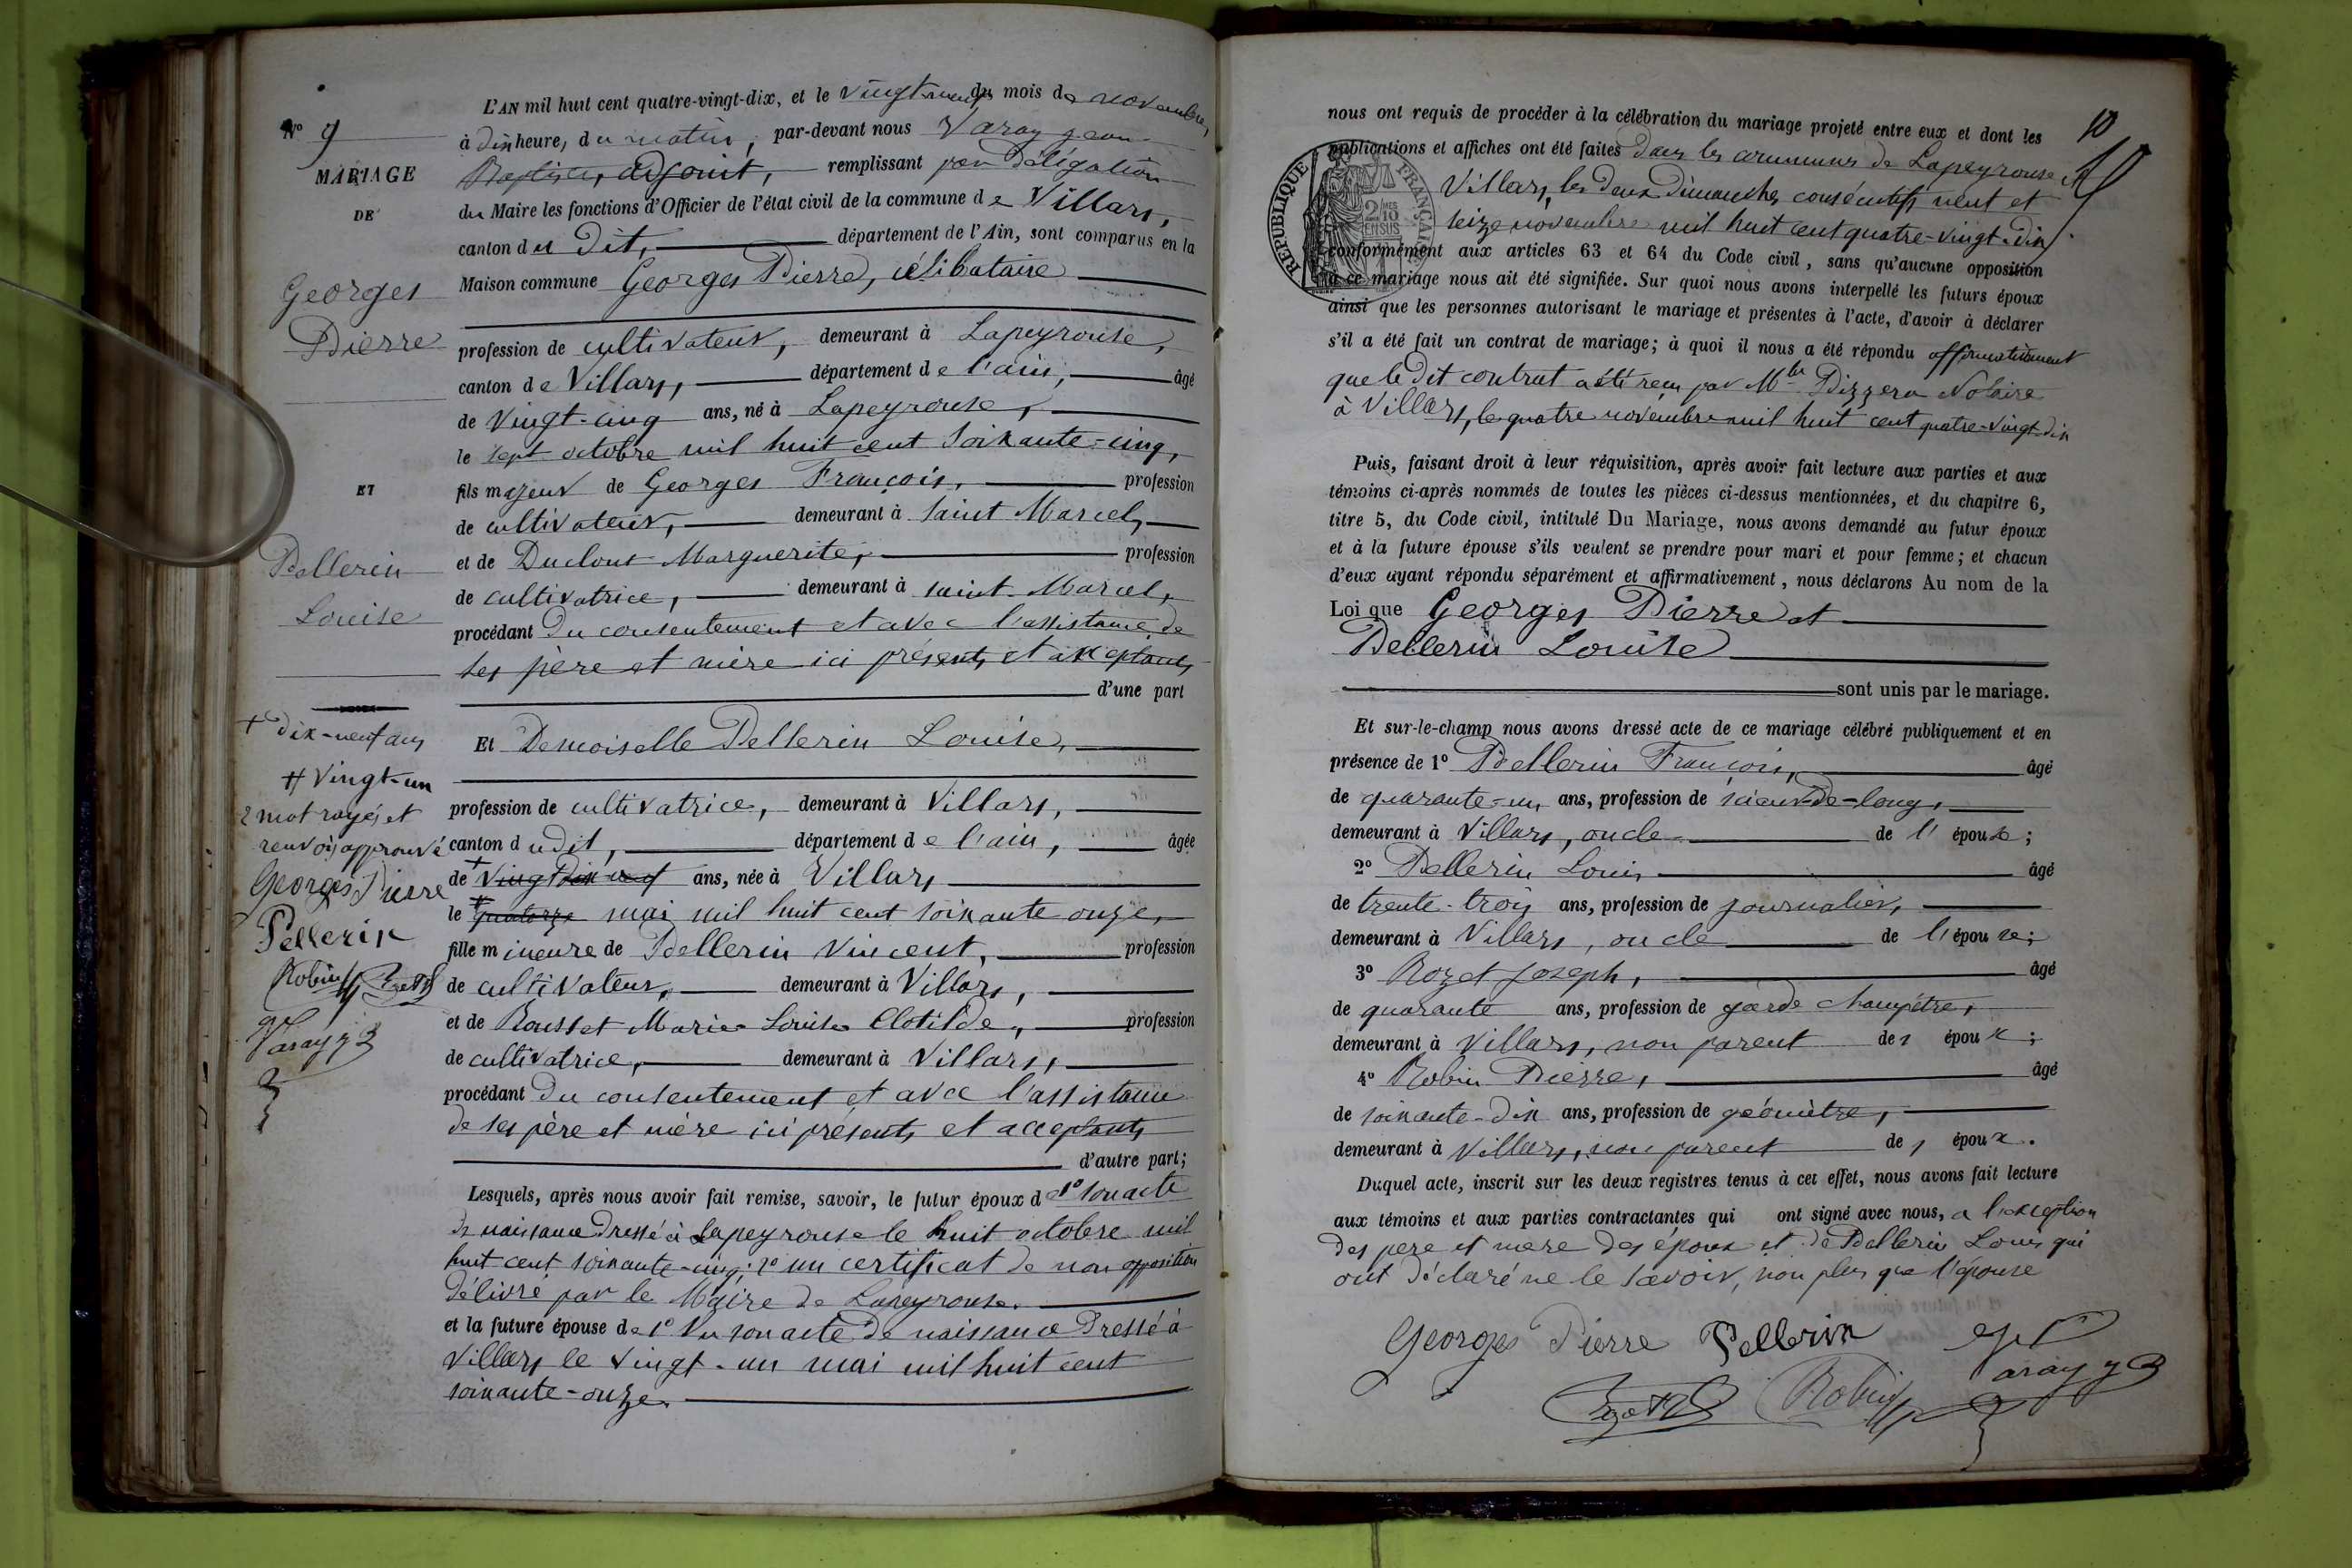 L'AN mil huit cent quatre-vingt-dix, et le vingt-neuf du mois de novembre,
à dix heure, du matin, par-devant nous Varay Jean
Baptiste, adjoint, remplissant par délégation
du Maire les fonctions d'Officier de l'état civil de la commune de Villars,
canton du dit, département de l'Ain, sont comparus en la
Maison commune Georges Pierre, célibataire
profession de cultivateur, demeurant à Lapeyrouse,
canton de Villars, département de l'ain, âgé
de vingt-cinq ans, né à Lapeyrouse,
le sept octobre mil huit cent soixante-cinq,
fils majeur de Georges François, profession
de cultivateur, demeurant à Saint Marcel,
et de Duclout Marguerite, profession
de cultivatrice, demeurant à saint-Marcel,
procédant du consentement et avec l'assistance de
ses père et mère ici présents et acceptants
d'une part
Et Demoiselle Pellerin Louise,
profession de cultivatrice, demeurant à Villars,
canton dudit, département de l'ain, âgée
de + ans, née à Villars
le # quatorze mai mil huit cent soixante onze,
fille mineure de Pellerin Vincent, profession
de cultivateur, demeurant à Villars,
et de Rousset Marie Louise Clotilde, profession
de cultivatrice, demeurant à Villars,
procédant du consentement et avec l'assistance
de ses père et mère ici présents et acceptants
d'autre part;
Lesquels, après nous avoir fait remise, savoir, le futur époux de 1° son acte
de naissance dressé à Lapeyrouse le huit octobre mil
huit cent soixante-cinq; 2° un certificat de non opposition
délivré par le Maire de Lapeyrouse.
et la future épouse de 1° Vu son acte de naissance dressé à
Villars le vingt-un mai mil huit cent
soixante-onze.
N° 9
MARIAGE
DE
Georges
Pierre
ET
Pellerin
Louise
+ dix-neuf ans
# vingt-un
2 mot rayés et
renvois approuvé
Georges Pierre
Pellerin
Robin
Varay
10
nous ont requis de procéder à la célébration du mariage projeté entre eux et dont les
publications et affiches ont été faites dans les communes de Lapeyrouse et
Villars, les deux dimanches consécutifs neuf et
seize novembre mil huit cent quatre-vingt-dix
conformément aux articles 63 et 64 du Code civil, sans qu'aucune opposition
à ce mariage nous ait été signifiée. Sur quoi nous avons interpellé les futurs époux
ainsi que les personnes autorisant le mariage et présentes à l'acte, d'avoir à déclarer
s'il a été fait un contrat de mariage; à quoi il nous a été répondu affirmativement
que le dit contrat a été reçu par Mtre Pizzera Notaire
à Villars, le quatre novembre mil huit cent quatre-vingt-dix
RÉPUBLIQUE FRANÇAISE
2/10 EN SUS
Puis, faisant droit à leur réquisition, après avoir fait lecture aux parties et aux
témoins ci-après nommés de toutes les pièces ci-dessus mentionnées, et du chapitre 6,
titre 5, du Code civil, intitulé Du Mariage, nous avons demandé au futur époux
et à la future épouse s'ils veulent se prendre pour mari et pour femme; et chacun
d'eux ayant répondu séparément et affirmativement, nous déclarons Au nom de la
Loi que Georges Pierre et
Pellerin Louise
sont unis par le mariage.
Et sur-le-champ nous avons dressé acte de ce mariage célébré publiquement et en
présence de 1° Pellerin François, âgé
de quarante-un, ans, profession de scieur-de-long,
demeurant à Villars, oncle de l'épouse;
2° Pellerin Louis âgé
de trente-trois ans, profession de journalier,
demeurant à Villars, oncle de l'épouse;
3° Rozet Joseph, âgé
de quarante ans, profession de garde champêtre,
demeurant à Villars, non parent des époux;
4° Robin Pierre, âgé
de soixante-dix ans, profession de géomètre,
demeurant à Villars, non parent des époux.
Duquel acte, inscrit sur les deux registres tenus à cet effet, nous avons fait lecture
aux témoins et aux parties contractantes qui ont signé avec nous, à l'exception
des pere et mere des époux et de Pellerin Louis qui
ont déclaré ne le savoir, non plus que l'épouse
Georges Pierre Pellerin Varay
Robin